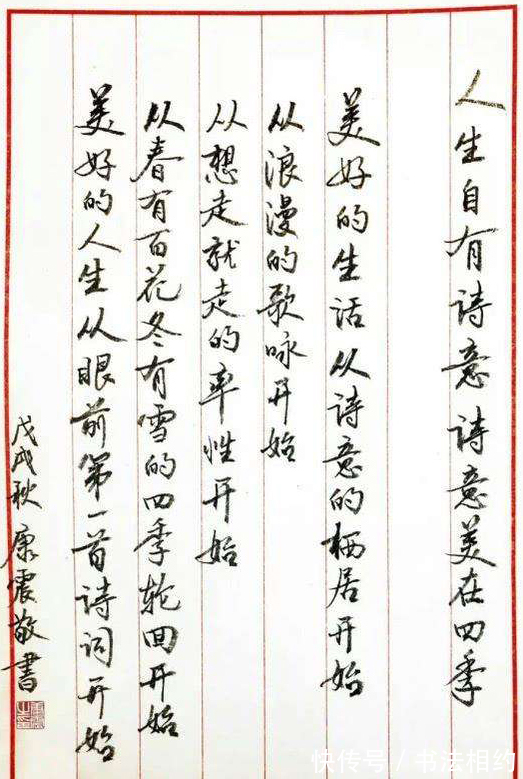 人生自有诗意诗意美在四季
美好的生活从诗意的栖居开始
从浪漫的歌咏开始
从想走就走的率性开始
从春有百花冬有雪的四季轮回开始
美好的人生从眼前第一首诗词开始
戊戌秋 康震敬書
快传号/书法相约